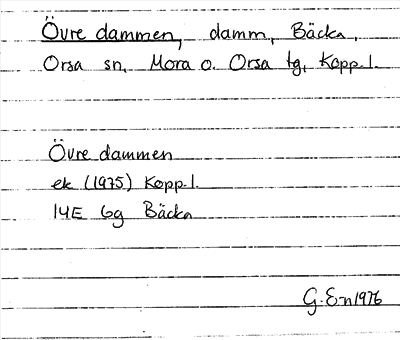 Övre dammen, damm, Bäcka,
Orsa sn, Mora o. Orsa tg, Kopp. l.
Övre dammen
ek (1975) Kopp. l.
14E 6g Bäcka
G. En 1976